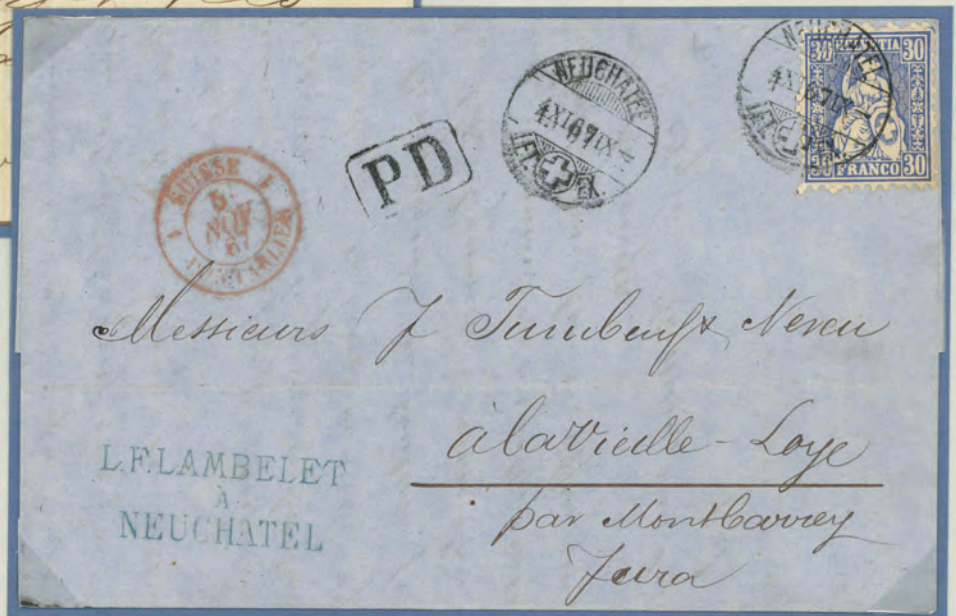 NEUCHATEL
4 XI 67 IX
LET. EX.
NEUCHATEL
4 XI 67 IX
30 HELVETIA 30
30 FRANCO 30
PD
SUISSE
5
NOV
67
PONTARLIER
Messieurs J Neveu
à la Vieille-Loye
par Montbarrey
Jura
L.F. LAMBELET
A
NEUCHATEL